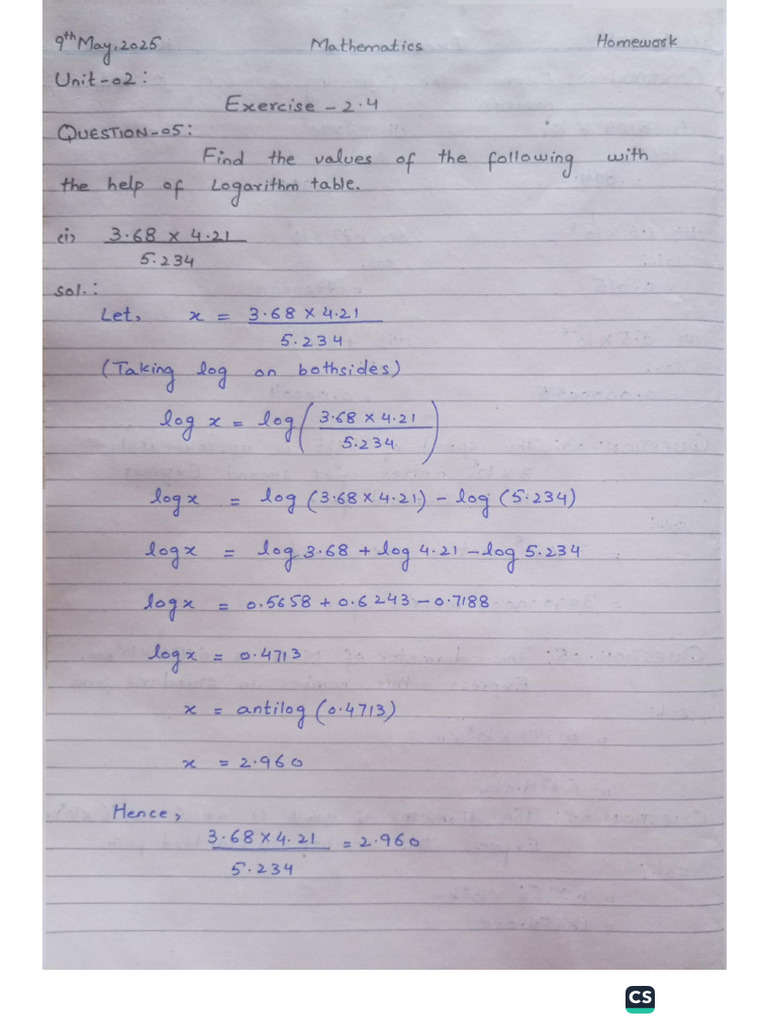 9th May, 2025 Mathematics Homework
Unit-02:
Exercise - 2.4
QUESTION-05:
Find the values of the following with
the help of Logarithm table.
(i) 3.68 x 4.21
5.234
sol.:
Let, x = 3.68 x 4.21
5.234
(Taking log on bothsides)
log x = log(3.68 x 4.21
5.234)
log x = log (3.68 x 4.21) - log (5.234)
log x = log 3.68 + log 4.21 - log 5.234
log x = 0.5658 + 0.6243 - 0.7188
log x = 0.4713
x = antilog (0.4713)
x = 2.960
Hence,
3.68 x 4.21 = 2.960
5.234
CS